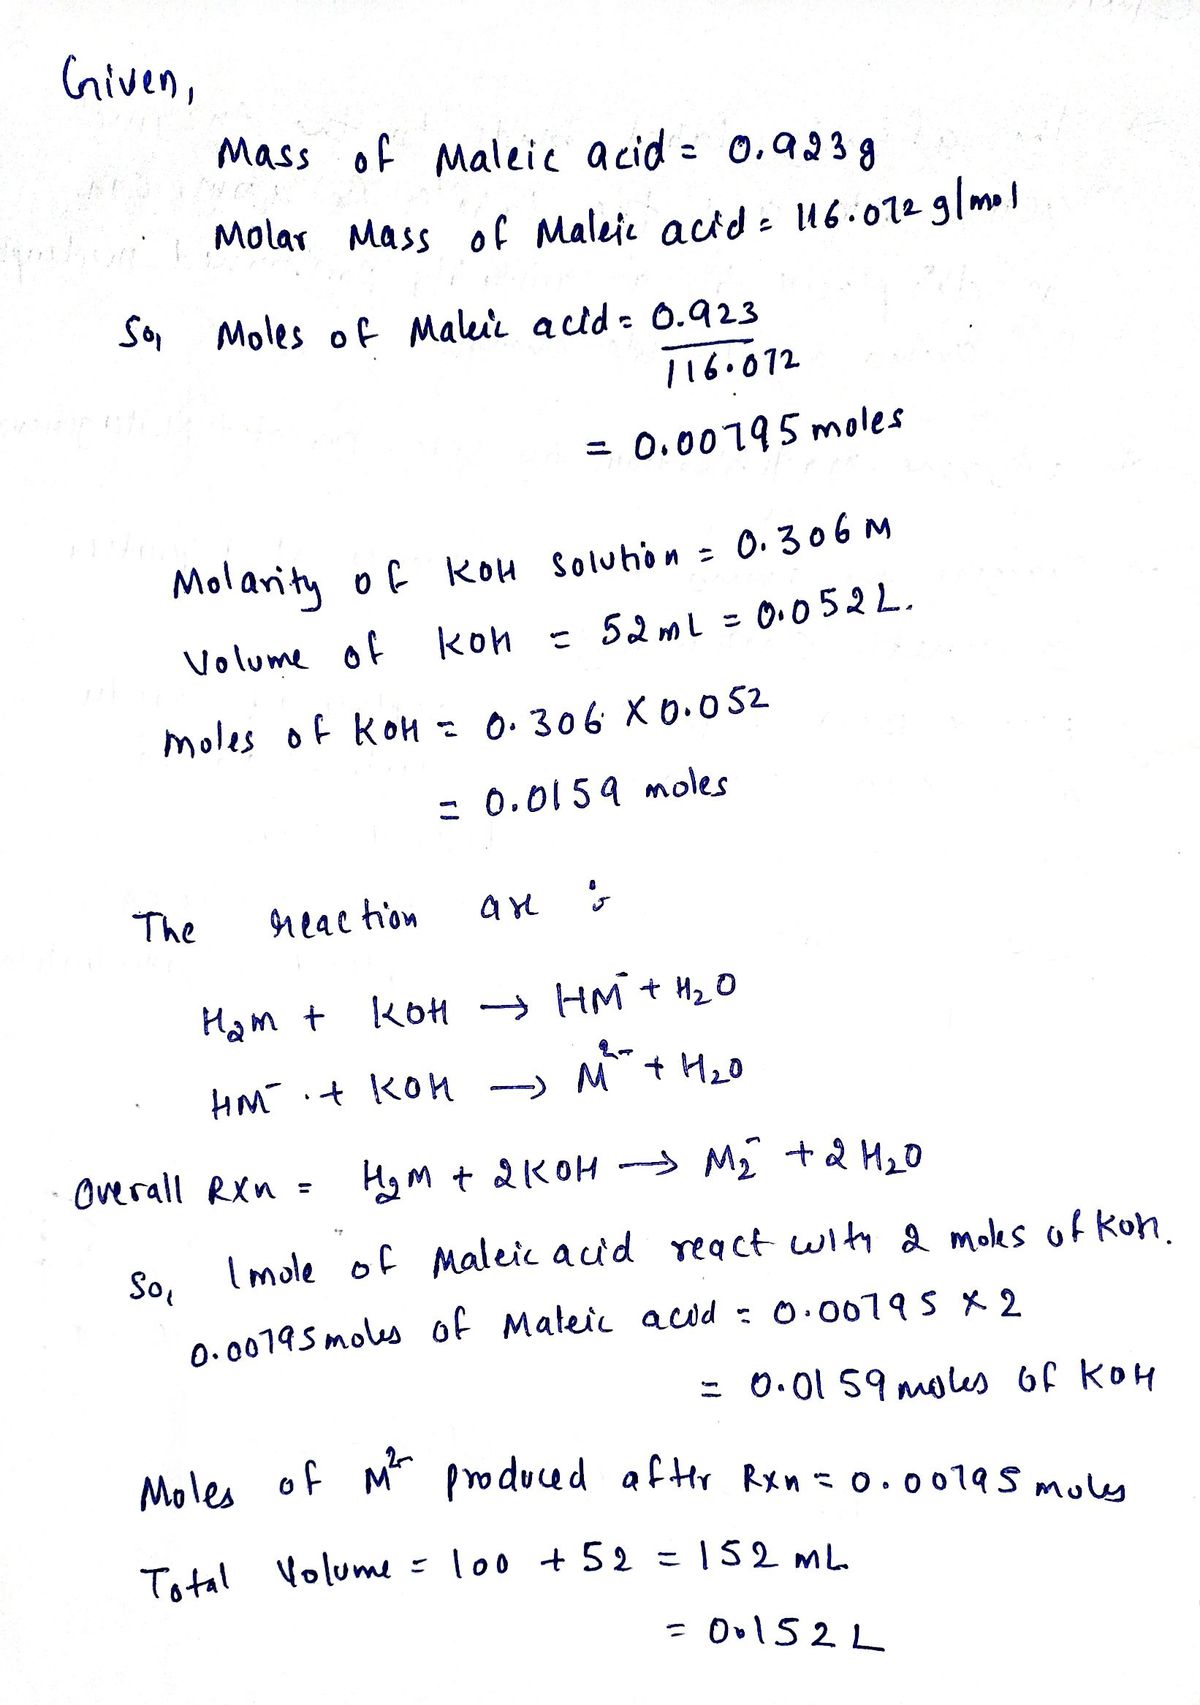 Given,
Mass of Maleic acid = 0.923 g
Molar Mass of Maleic acid = 116.072 g/mol
So, Moles of Maleic acid = 0.923
116.072
= 0.00795 moles
Molarity of KOH Solution = 0.306 M
Volume of KOH = 52 mL = 0.052 L.
moles of KOH = 0.306 × 0.052
= 0.0159 moles
The reaction are :
H₂M + KOH → HM⁻ + H₂O
HM⁻ + KOH → M²⁻ + H₂O
Overall RXn = H₂M + 2KOH → M₂⁻ + 2H₂O
So, 1 mole of Maleic acid react with 2 moles of KOH.
0.00795 moles of Maleic acid = 0.00795 × 2
= 0.0159 moles of KOH
Moles of M²⁻ produced after Rxn = 0.00795 moles
Total Volume = 100 + 52 = 152 mL
= 0.152 L